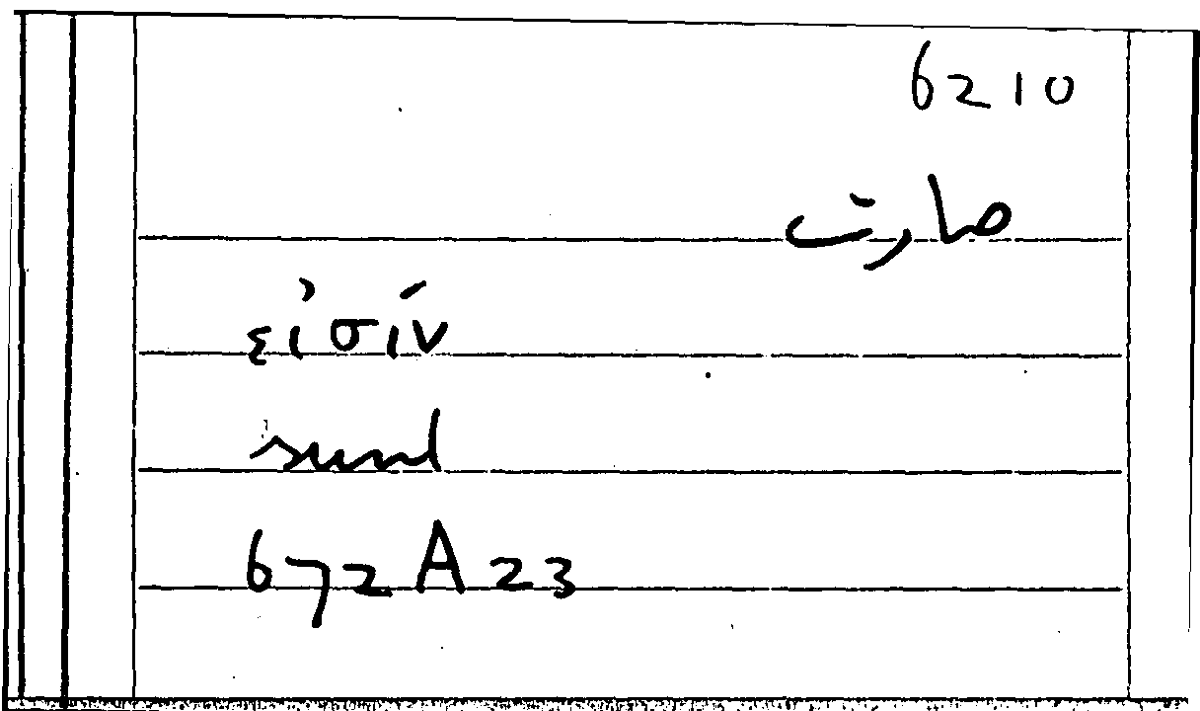 6210
صارت
εἰσίν
sunt
672 A 23